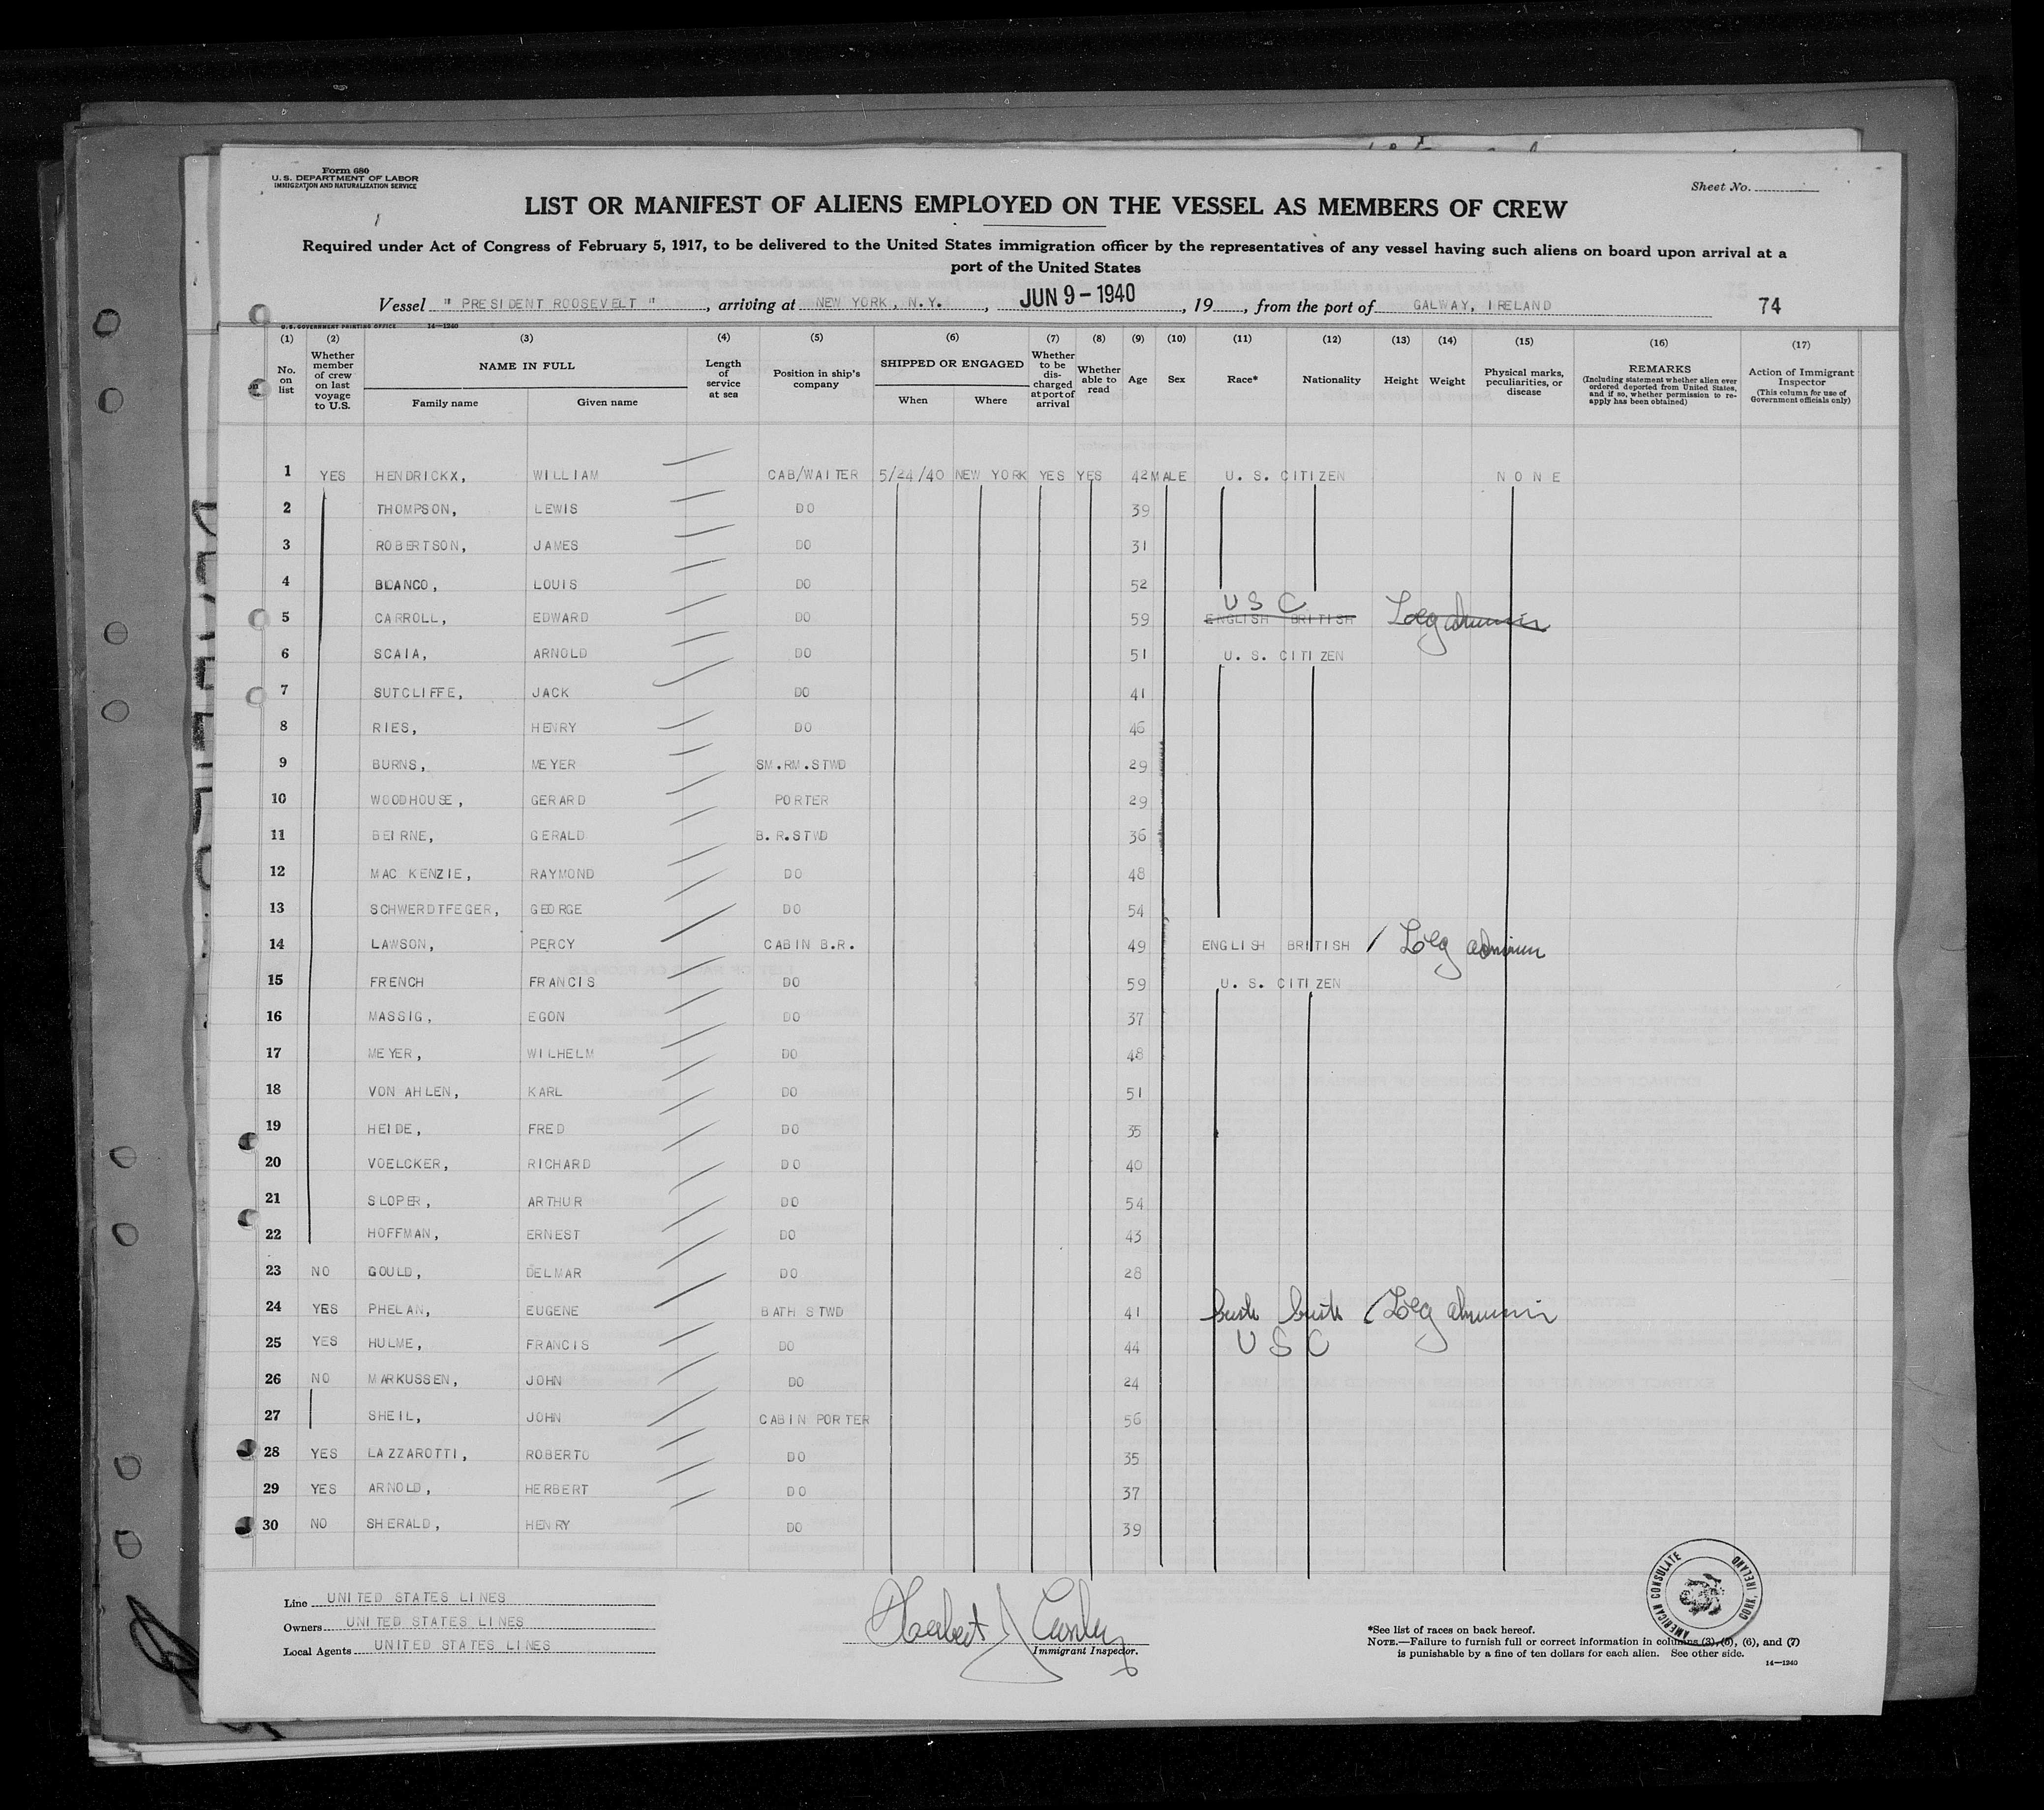 Form 680
U. S. DEPARTMENT OF LABOR
IMMIGRATION AND NATURALIZATION SERVICE
Sheet No.
LIST OR MANIFEST OF ALIENS EMPLOYED ON THE VESSEL AS MEMBERS OF CREW
Required under Act of Congress of February 5, 1917, to be delivered to the United States immigration officer by the representatives of any vessel having such aliens on board upon arrival at a
port of the United States
Vessel " PRESIDENT ROOSEVELT ", arriving at NEW YORK, N.Y., JUN 9 - 1940, 19, from the port of GALWAY, IRELAND 74
U. S. GOVERNMENT PRINTING OFFICE 14—1240
(1) (2) (3) (4) (5) (6) (7) (8) (9) (10) (11) (12) (13) (14) (15) (16) (17)
No. on list
Whether member of crew on last voyage to U.S.
NAME IN FULL
Family name Given name
Length of service at sea
Position in ship's company
SHIPPED OR ENGAGED
When Where
Whether to be discharged at port of arrival
Whether able to read
Age
Sex
Race*
Nationality
Height
Weight
Physical marks, peculiarities, or disease
REMARKS
(Including statement whether alien ever ordered deported from United States, and if so, whether permission to reapply has been obtained)
Action of Immigrant Inspector
(This column for use of Government officials only)
1 YES HENDRICKX, WILLIAM CAB/WAITER 5/24/40 NEW YORK YES YES 42 MALE U. S. CITIZEN NONE
2 THOMPSON, LEWIS DO 39
3 ROBERTSON, JAMES DO 31
4 BLANCO, LOUIS DO 52
5 CARROLL, EDWARD DO 59 U S C ENGLISH BRITISH
6 SCAIA, ARNOLD DO 51 U. S. CITIZEN
7 SUTCLIFFE, JACK DO 41
8 RIES, HENRY DO 46
9 BURNS, MEYER SM.RM.STWD 29
10 WOODHOUSE, GERARD PORTER 29
11 BEIRNE, GERALD B.R.STWD 36
12 MAC KENZIE, RAYMOND DO 48
13 SCHWERDTFEGER, GEORGE DO 54
14 LAWSON, PERCY CABIN B.R. 49 ENGLISH BRITISH
15 FRENCH FRANCIS DO 59 U. S. CITIZEN
16 MASSIG, EGON DO 37
17 MEYER, WILHELM DO 48
18 VON AHLEN, KARL DO 51
19 HEIDE, FRED DO 35
20 VOELCKER, RICHARD DO 40
21 SLOPER, ARTHUR DO 54
22 HOFFMAN, ERNEST DO 43
23 NO GOULD, DELMAR DO 28
24 YES PHELAN, EUGENE BATH STWD 41
25 YES HULME, FRANCIS DO 44 U S C
26 NO MARKUSSEN, JOHN DO 24
27 SHEIL, JOHN CABIN PORTER 56
28 YES LAZZAROTTI, ROBERTO DO 35
29 YES ARNOLD, HERBERT DO 37
30 NO SHERALD, HENRY DO 39
Line UNITED STATES LINES
Owners UNITED STATES LINES
Local Agents UNITED STATES LINES
Immigrant Inspector.
AMERICAN CONSULATE
CORK, IRELAND
*See list of races on back hereof.
NOTE.—Failure to furnish full or correct information in columns (3), (5), (6), and (7)
is punishable by a fine of ten dollars for each alien. See other side.
14—1240